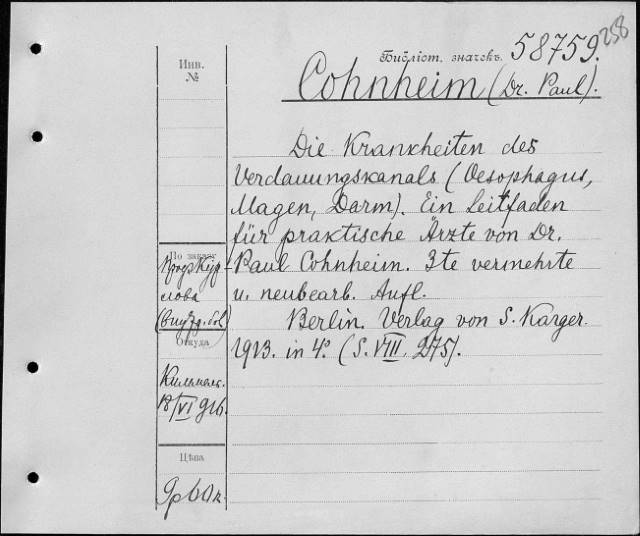 258
Библіот. значекъ. 58759.
Инв.
№
Cohnheim (Dr. Paul).
Die Krankheiten des
Verdauungskanals (Oesophagus,
Magen, Darm). Ein Leitfaden
für praktische Ärzte von Dr.
Paul Cohnheim. 3te vermehrte
u. neubearb. Aufl.
Berlin. Verlag von S. Karger.
1913. in 4º. (S. VIII. 275).
По заказу
слова
Откуда
18/VI 916.
Цѣна
9р 60 к.